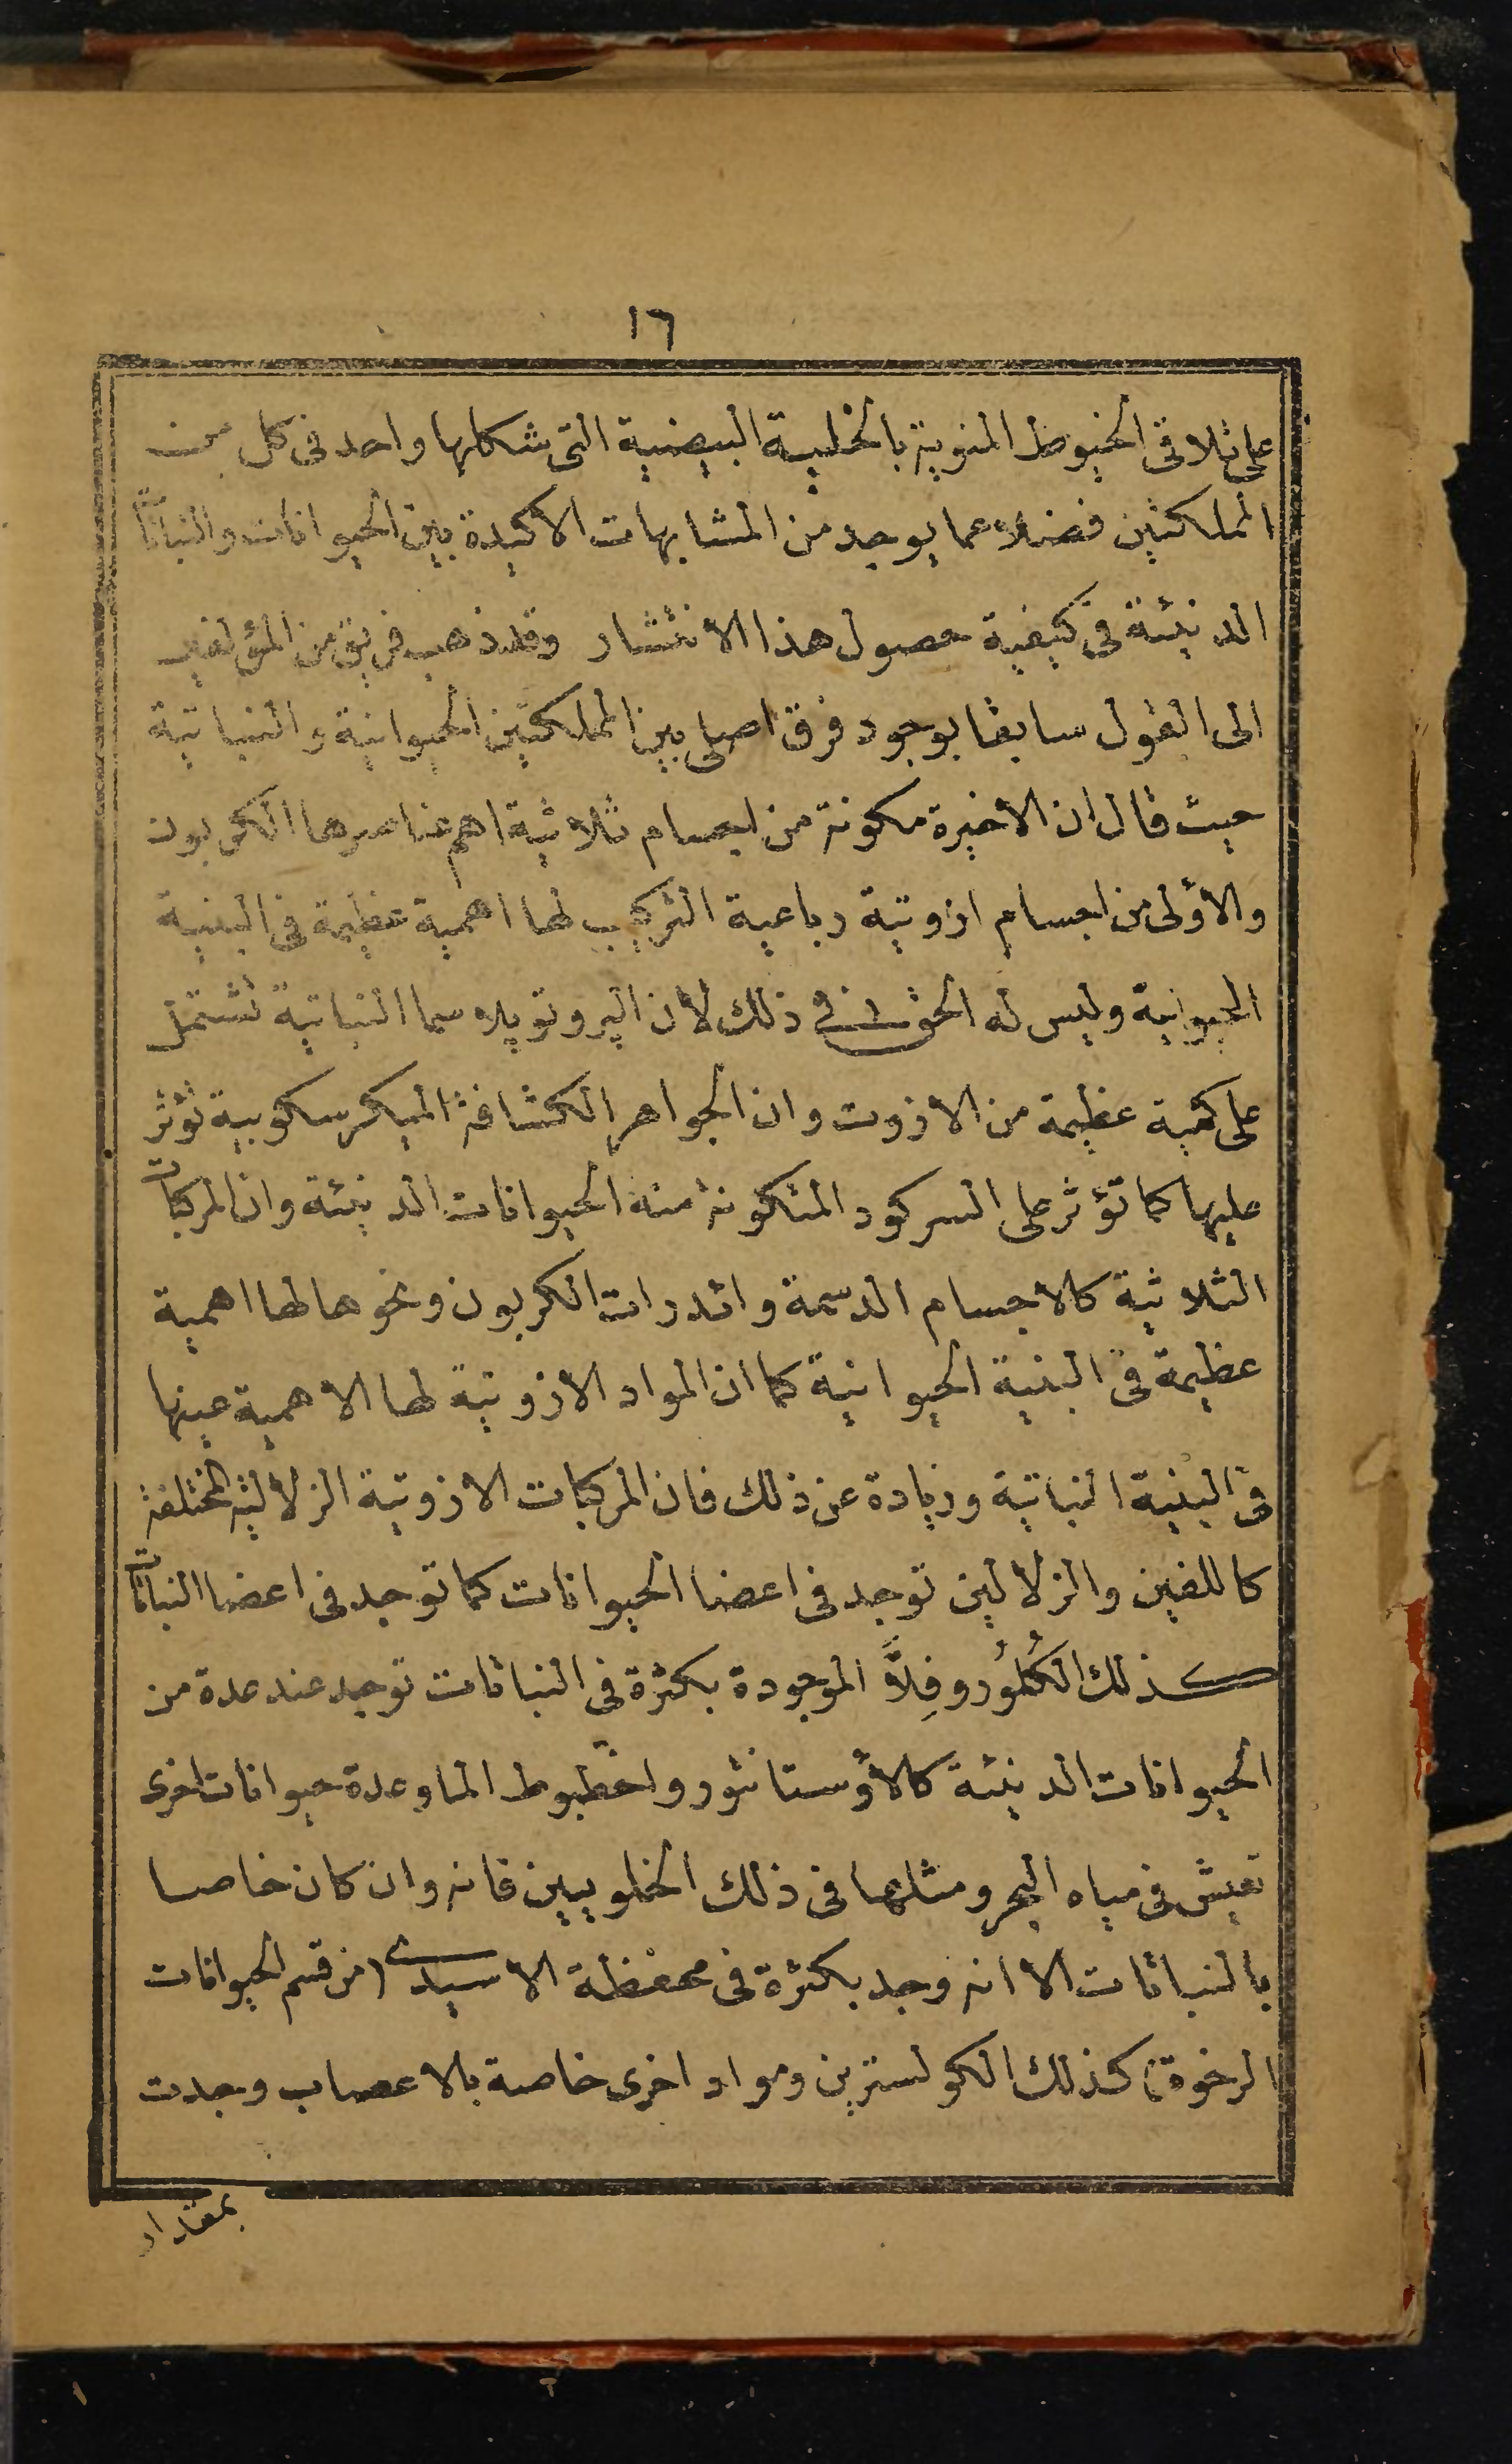 ١٦
على تلاقى الخيوط المنوية بالخلية البيضية التى شكلها واحد فى كل من
المملكتين فضلا عما يوجد من المشابهات الاكيدة بين الحيوانات والنباتات
الدنيئة فى كيفية حصول هذا الانتشار وقد ذهب فريق من المؤلفين
الى القول سابقا بوجود فرق اصلى بين المملكتين الحيوانية والنباتية
حيث قال ان الاخيرة مكونة من اجسام ثلاثية اهم عناصرها الكربون
والأولى من اجسام ازوتية رباعية التركيب لها اهمية عظيمة فى البنية
الحيوانية وليس له الحق فى ذلك لان البروتوپلاسما النباتية تشتمل
على كمية عظيمة من الازوت وان الجواهر الكشافة الميكرسكوبية تؤثر
عليها كما تؤثر على السركود المتكونة منه الحيوانات الدنيئة وان المركبات
الثلاثية كالاجسام الدسمة وائدرات الكربون ونحوها لها اهمية
عظيمة فى البنية الحيوانية كما ان المواد الازوتية لها الاهمية عينها
فى البنية النباتية وزيادة عن ذلك فان المركبات الازوتية الزلالية المختلفة
كاللفين والزلالين توجد فى اعضا الحيوانات كما توجد فى اعضا النباتات
كذلك الكُلُورُوفِلاَّ الموجودة بكثرة فى النباتات توجد عند عدة من
الحيوانات الدنيئة كالأوستانتور واخطبوط الما وعدة حيوانات اخرى
تعيش فى مياه البحر ومثلها فى ذلك الخلويين فانه وان كان خاصا
بالنباتات الا انه وجد بكثرة فى محفظة الاسيدى (من قسم الحيوانات
الرخوة) كذلك الكولسترين ومواد اخرى خاصة بالاعصاب وجدت
بمقدار